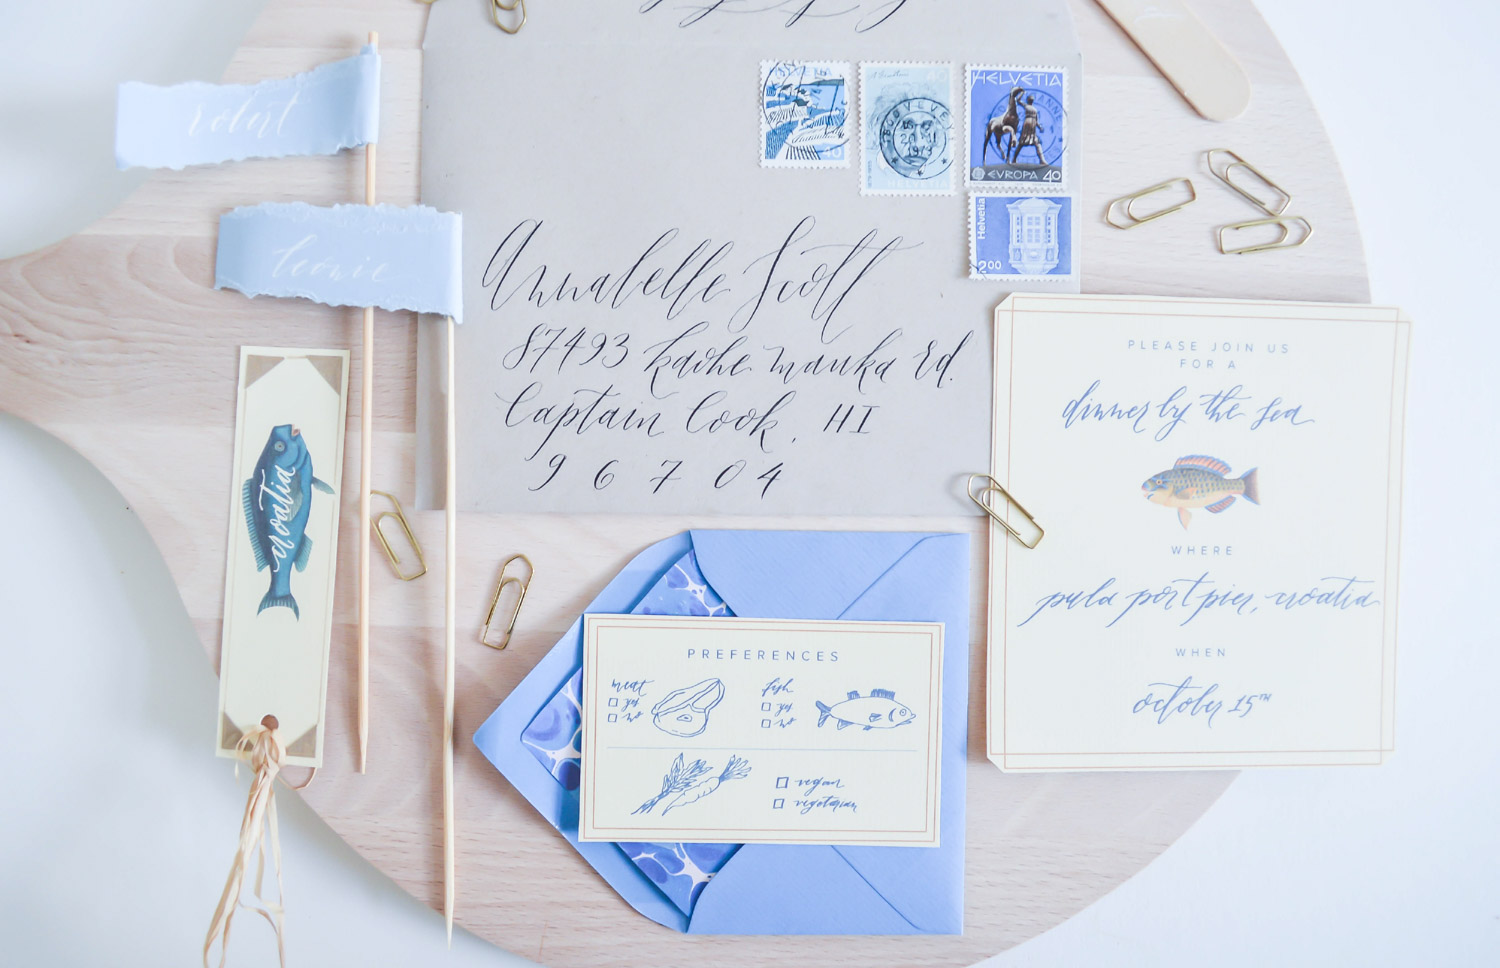 robert
leonie
croatia
HELVETIA
EVROPA 40
Helvetia
200
Annabelle Scott
87493 kaohe mauka rd.
Captain Cook, HI
96704
PLEASE JOIN US
FOR A
dinner by the sea
WHERE
pula port pier, croatia
WHEN
october 15TH
PREFERENCES
meat
yes
no
fish
yes
no
vegan
vegetarian